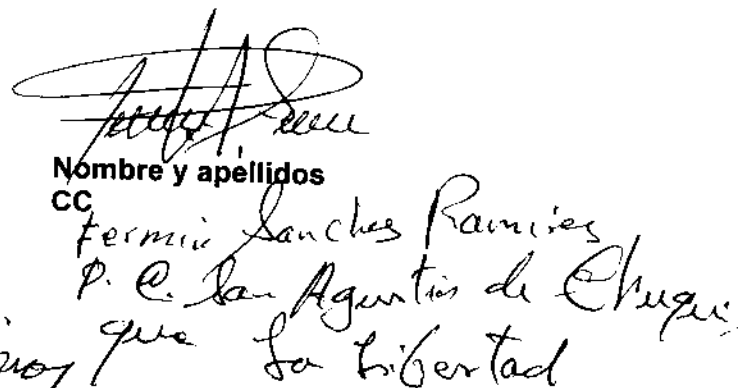 Nombre y apellidos
CC
Fermin Sanches Ramires
P. C. San Agustin de
que La Libertad